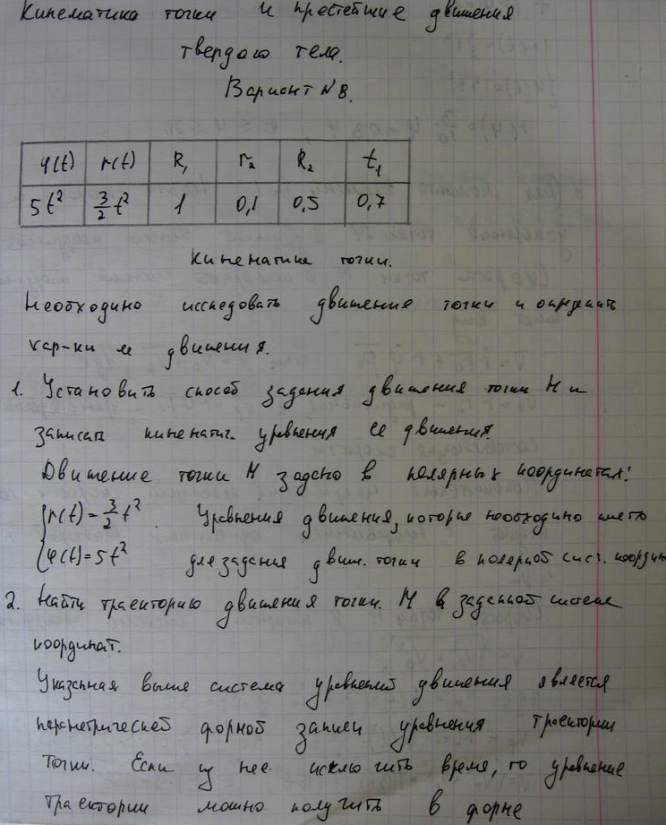 Кинематика точки и простейшие движения
твердого тела.
Вариант №8.
φ(t) r(t) R₁ r₂ R₂ t₁
5t² 3/2 t² 1 0,1 0,5 0,7
Кинематика точки.
Необходимо исследовать движения точки и определить
хар-ки ее движения.
1. Установить способ задания движения точки М и
записать кинематич. уравнения ее движения.
Движение точки М задано в полярных координатах:
{ r(t) = 3/2 t² . Уравнения движения, которые необходимо иметь
{ φ(t) = 5t² для задания движ. точки в полярной сист. координ
2. Найти траекторию движения точки М в заданной системе
координат.
Указанная выше система уравнений движения является
параметрической формой записи уравнения траектории
точки. Если из нее исключить время, то уравнение
траектории можно получить в форме